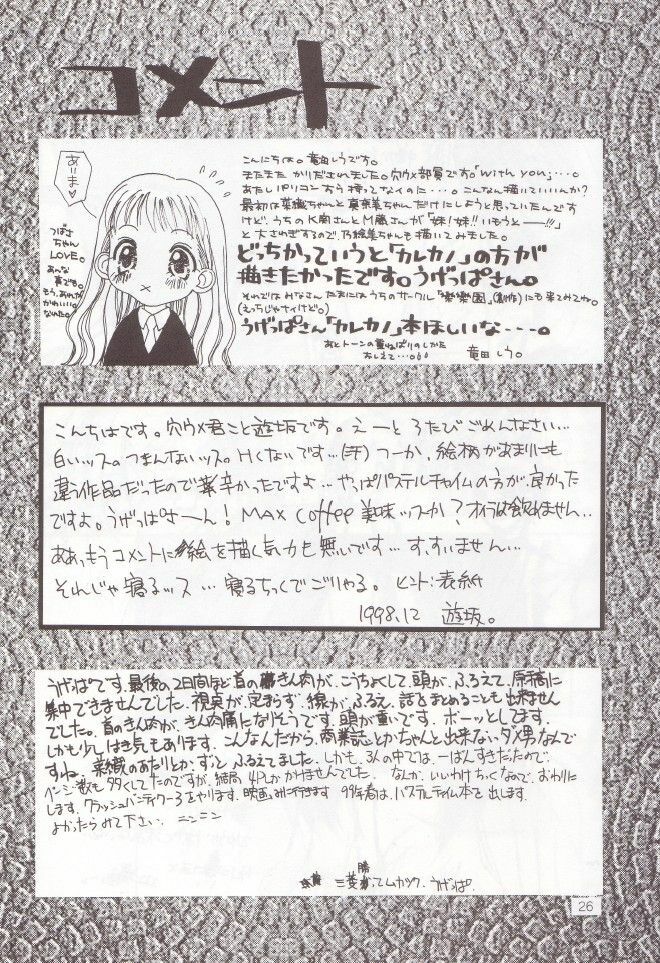 コメント
あいま♡
つばさ
ちゃん
LOVE。
あんな
妻でも。
もう、あれが
かわいい
なんた。
こんにちは。竜田しうです。
またまた かりだされました。穴ウメ部員です。「with you」・・・。
あたしパソコンすら持ってないのに・・・。こんなん描いていいんか?
最初は菜織ちゃんと真奈美ちゃんだけにしようと思っていたんです
けど、うちのK南さんとM蔵さんが「妹!妹!!いもうとー!!!」
と大さわぎするので、乃絵美ちゃんも描いてみました。
どっちかっていうと「カレカノ」の方が
描きたかったです。うげっぱさん。
それではみなさん たまにはうちのサークル「楽園」(創作)にも来てみてね。
(えっちじゃナイけど。)
うげっぱさん「カレカノ」本ほしいな---。
あとトーンの重ねばりのしかた
おしえて・・・。
竜田しう。
こんちはです。穴ウメ君こと遊坂です。えーと ろたび ごめんなさい…
白いッス。つまんないッス。Hくないです…(汗) つーか、絵柄があまりにも
違う作品だったので辛かったですよ…やっぱパステルチャイムの方が良かった
ですよ。うげっぱさーん! MAX Coffee 美味ッスか? オイラは飲めません…
ああっもうコメントに絵を描く気力も無いです… す、すいません…
そんじゃ寝るッス… 寝るちっくでごりゃる。 ヒント:表紙
1998.12 遊坂。
うげっぱです。最後の2日間ほど首のきん肉が、こうちょくして、頭が、ふるえて、原稿に
集中できませんでした。視点が定まらず、線が、ふるえ、話をまとめることも出来ません
でした。首のきん肉が、きん肉痛になりそうです。頭が重いです。ボーッとしてます。
しかも少しはき気もあります。こんなんだから、商業誌とかちゃんと出来ないダメ男なんで
すね。菜織のあたりとか、ずっとふるえてました。しかも、3人の中では、一ばんすきだたので、
ページ数も多くしてたのですが、結局、4Pしかかけませんでした。なんか、いいわけちっくなので、おわりに
します。クラッシュバンディクー3をやります。映画みに行きます。99年春は、パステルチャイム本を出します。
よかったらみて下さい。ニンニン
うげっぱ.
26